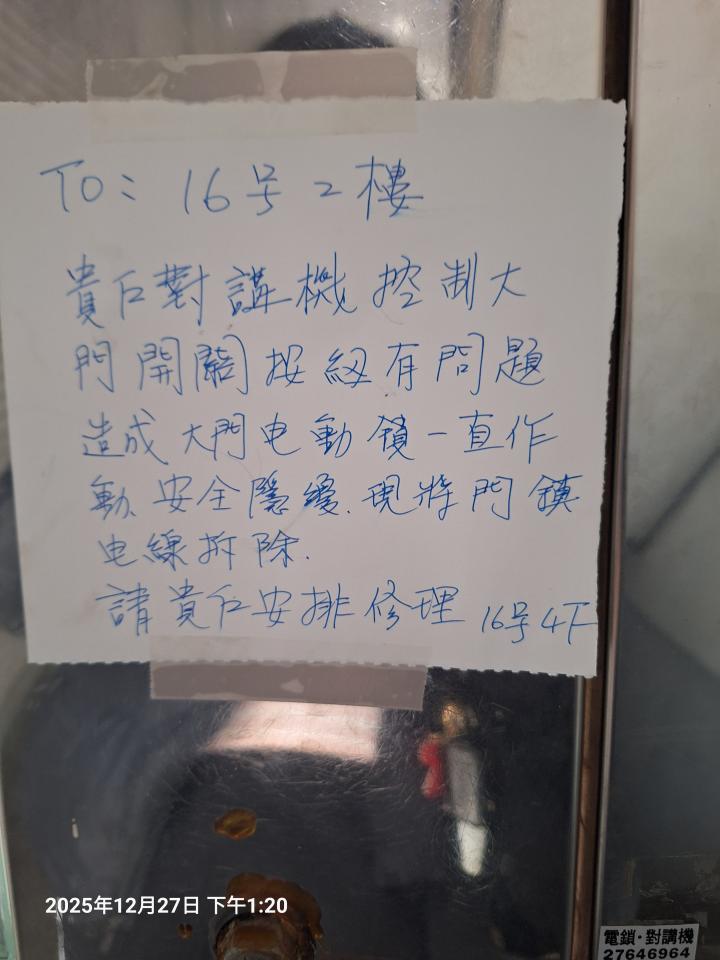 TO: 16号2樓
貴户對講機控制大
門開關按紐有問題
造成大門电動鎖一直作
動.安全隱憂.現將門鎖
电線拆除.
請貴户安排修理 16号4F
2025年12月27日 下午1:20
電鎖·對講機
27646964